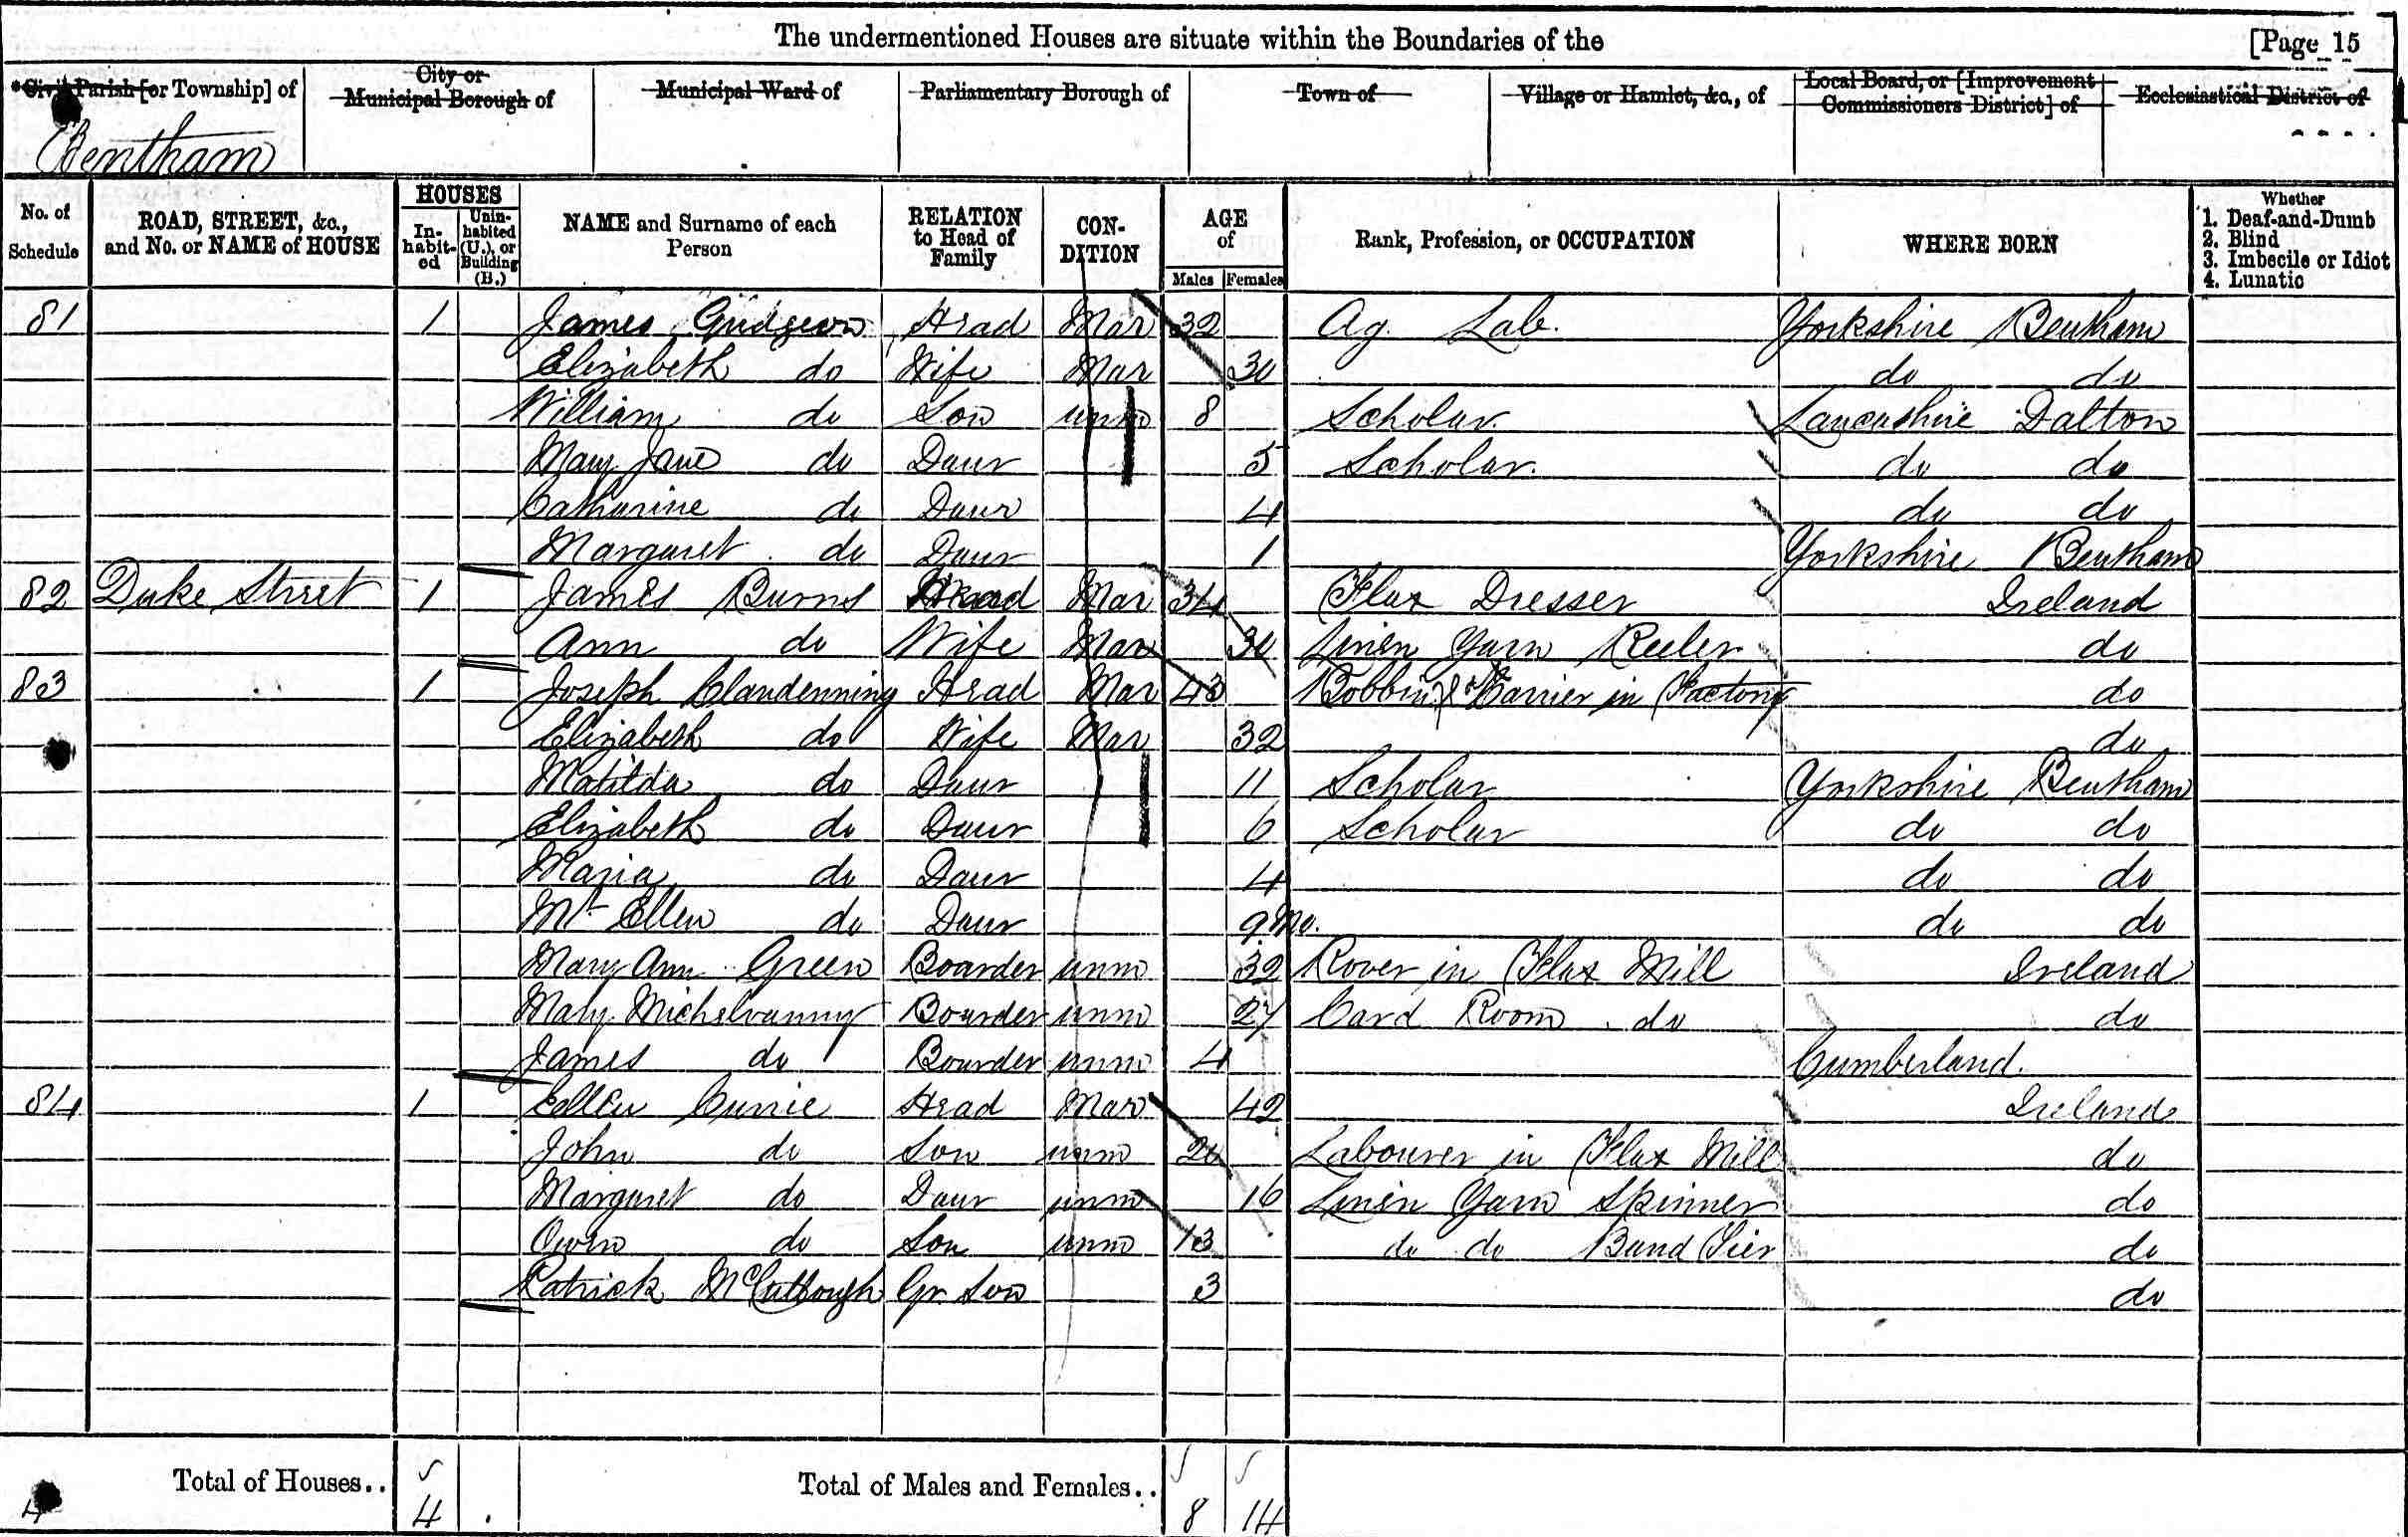 The undermentioned Houses are situate within the Boundaries of the [Page 15
*Civil Parish [or Township] of City or Municipal Borough of Municipal Ward of Parliamentary Borough of Town of Village or Hamlet, &c., of Local Board, or [Improvement Commissioners District] of Ecclesiastical District of
Bentham
No. of Schedule ROAD, STREET, &c., and No. or NAME of HOUSE HOUSES In-habit-ed Unin-habited (U.), or Building (B.) NAME and Surname of each Person RELATION to Head of Family CON-DITION AGE of Males Females Rank, Profession, or OCCUPATION WHERE BORN Whether 1. Deaf-and-Dumb 2. Blind 3. Imbecile or Idiot 4. Lunatic
81 1 James Gudgeon Head Mar 32 Ag. Lab. Yorkshire Bentham
Elizabeth do Wife Mar 30 do do
William do Son unm 8 Scholar Lancashire Dalton
Mary Jane do Daur 5 Scholar do do
Catharine do Daur 4 do do
Margaret do Daur 1 Yorkshire Bentham
82 Duke Street 1 James Burns Head Mar 34 Flax Dresser Ireland
Ann do Wife Mar 30 Linen Yarn Reeler do
83 1 Joseph Clandenning Head Mar 43 Bobbin Carrier in Factory do
Elizabeth do Wife Mar 32 do
Matilda do Daur 11 Scholar Yorkshire Bentham
Elizabeth do Daur 6 Scholar do do
Maria do Daur 4 do do
Mt Ellen do Daur 9 Mo. do do
Mary Ann Green Boarder unm 32 Rover in Flax Mill Ireland
Mary Michelvanny Boarder unm 27 Card Room do do
James do Boarder unm 4 Cumberland.
84 1 Ellen Currie Head Mar 42 Ireland
John do Son unm 20 Labourer in Flax Mill do
Margaret do Daur unm 16 Linen Yarn Spinner do
Owen do Son unm 13 do do Band Tier do
Patrick McCullough Gr. Son 3 do
Total of Houses.. 4 Total of Males and Females.. 8 14
4